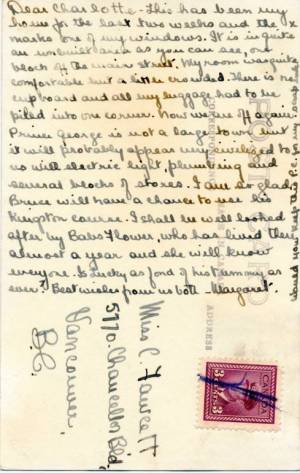 Dear Charlotte - This has been my
home for the last two weeks and the X
marks one of my windows. It is in quite
an unbuilt area as you can see, one
block off the main street. My room was quite
comfortable but a little crowded. There is no
cupboard and all my luggage had to be
piled into one corner. Now we're off again.
Prince George is not a large town but
it will probably appear very civilized to
us with electric light, plumbing and
several blocks of stores. I am so glad
Bruce will have a chance to use his
Kingston course. I shall be well looked
after by Babs Flower, who has lived there
almost a year and she will know
everyone. Is Lucky as fond of his tummy as
ever? Best wishes from us both - Margaret.
Miss C. Fawcett
5770 Chancellor Blvd.
Vancouver
B.C.
POST CARD
CORRESPONDENCE
ADDRESS
CANADA
3 CENTS 3